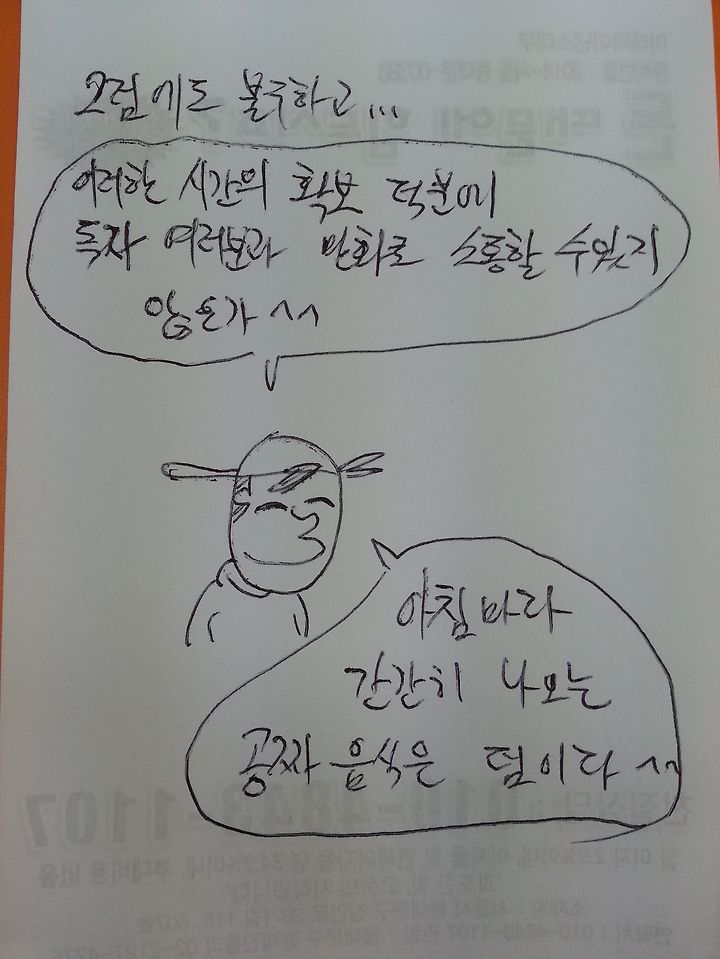 그럼에도 불구하고...
이러한 시간의 확보 덕분에
독자 여러분과 만화로 소통할 수 있지
않은가 ^^
아침마다
간간히 나오는
공짜 음식은 덤이다 ^^